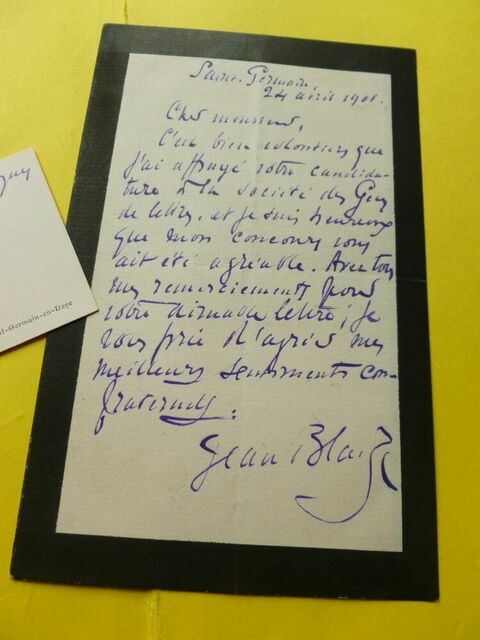 Saint-Germain,
24 avril 1901.
Cher monsieur,
C'est bien volontiers que
j'ai appuyé votre candida-
ture à la société des Gens
de lettres, et je suis heureux
que mon concours vous
ait été agréable. Avec tous
mes remerciements pour
votre aimable lettre, je
vous prie d'agréer mes
meilleurs sentiments con-
fraternels.
Jean Blaize
t-Germain-en-Laye